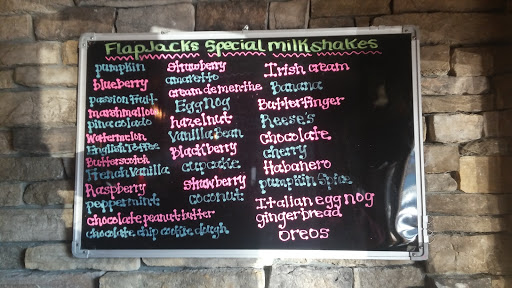 FlapJacks Special milkshakes
pumpkin
blueberry
passion fruit
marshmallow
pina colado
watermelon
English toffee
Butterscotch
French Vanilla
Raspberry
peppermint
chocolate peanut butter
chocolate chip cookie dough
strawberry
amaretto
cream de menthe
Eggnog
hazelnut
Vanilla Bean
blackberry
cupcake
strawberry
coconut
Irish cream
Banana
Butterfinger
Reese's
chocolate
cherry
Habanero
pumpkin Spice
Italian eggnog
gingerbread
oreos